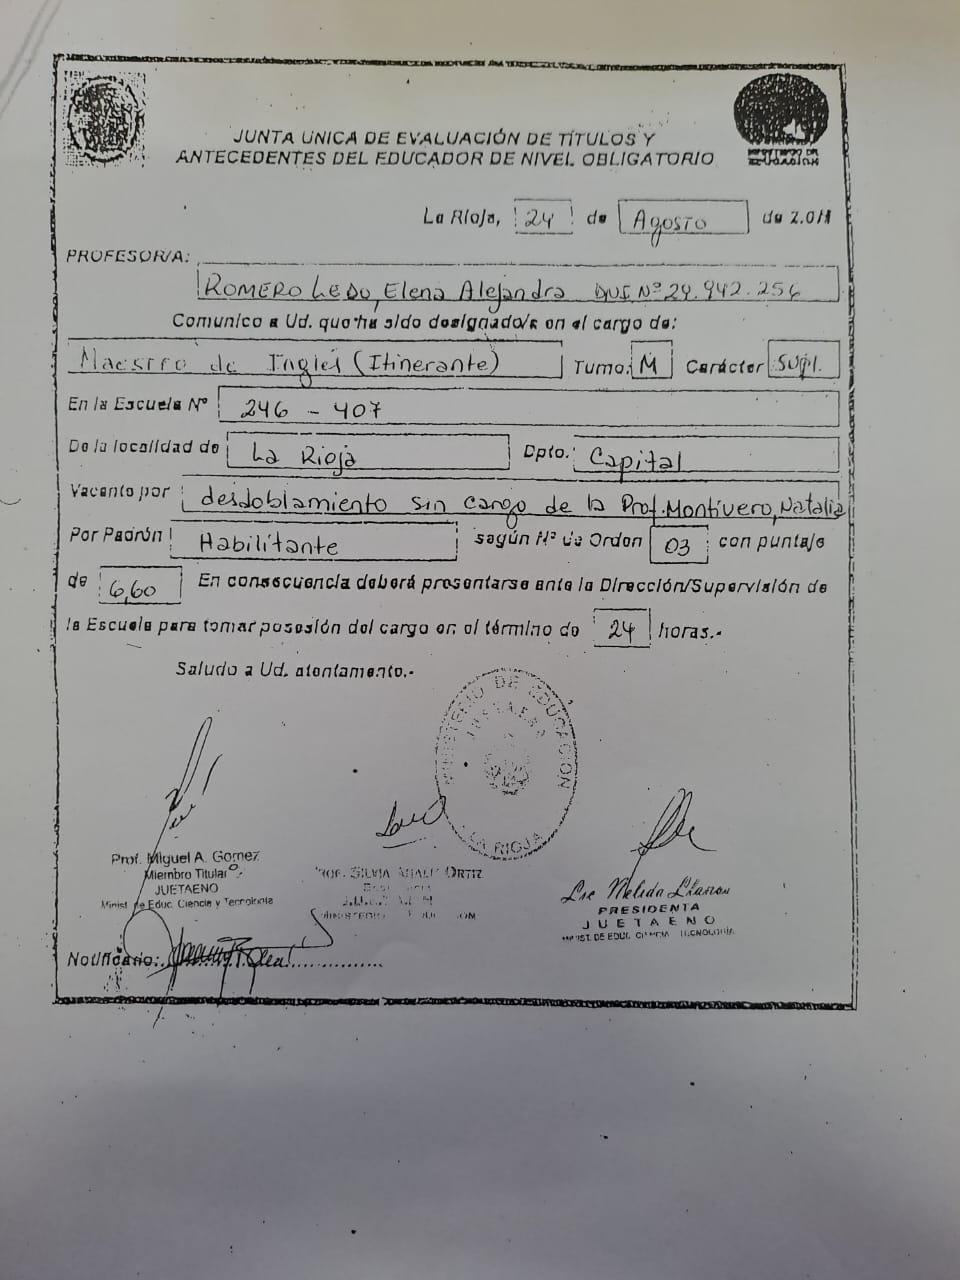 JUNTA UNICA DE EVALUACIÓN DE TÍTULOS Y
ANTECEDENTES DEL EDUCADOR DE NIVEL OBLIGATORIO
MINISTERIO DE
EDUCACIÓN
La Rioja, 24 de Agosto de 2.011
PROFESOR/A:
ROMERO LEDO, Elena Alejandra DUI Nº 24.942.256
Comunico a Ud. que ha sido designado/a en el cargo de:
Maestro de Inglés (Itinerante) Turno: M Carácter Supl.
En la Escuela Nº 246 - 407
De la localidad de La Rioja Dpto.: Capital
Vacante por desdoblamiento sin cargo de la Prof. Montivero, Natalia
Por Padrón Habilitante según Nº de Orden 03 con puntaje
de 6,60 En consecuencia deberá presentarse ante la Dirección/Supervisión de
la Escuela para tomar posesión del cargo en el término de 24 horas.-
Saludo a Ud. atentamente.-
MINISTERIO DE EDUCACIÓN
LA RIOJA
Prof. Miguel A. Gomez
Miembro Titular
JUETAENO
Minist. de Educ. Ciencia y Tecnología
PROF. SILVIA ORTIZ
Lic Melida Llanos
PRESIDENTA
JUETAENO
MINIST. DE EDUC. CIENCIA TECNOLOGÍA
Notificado: